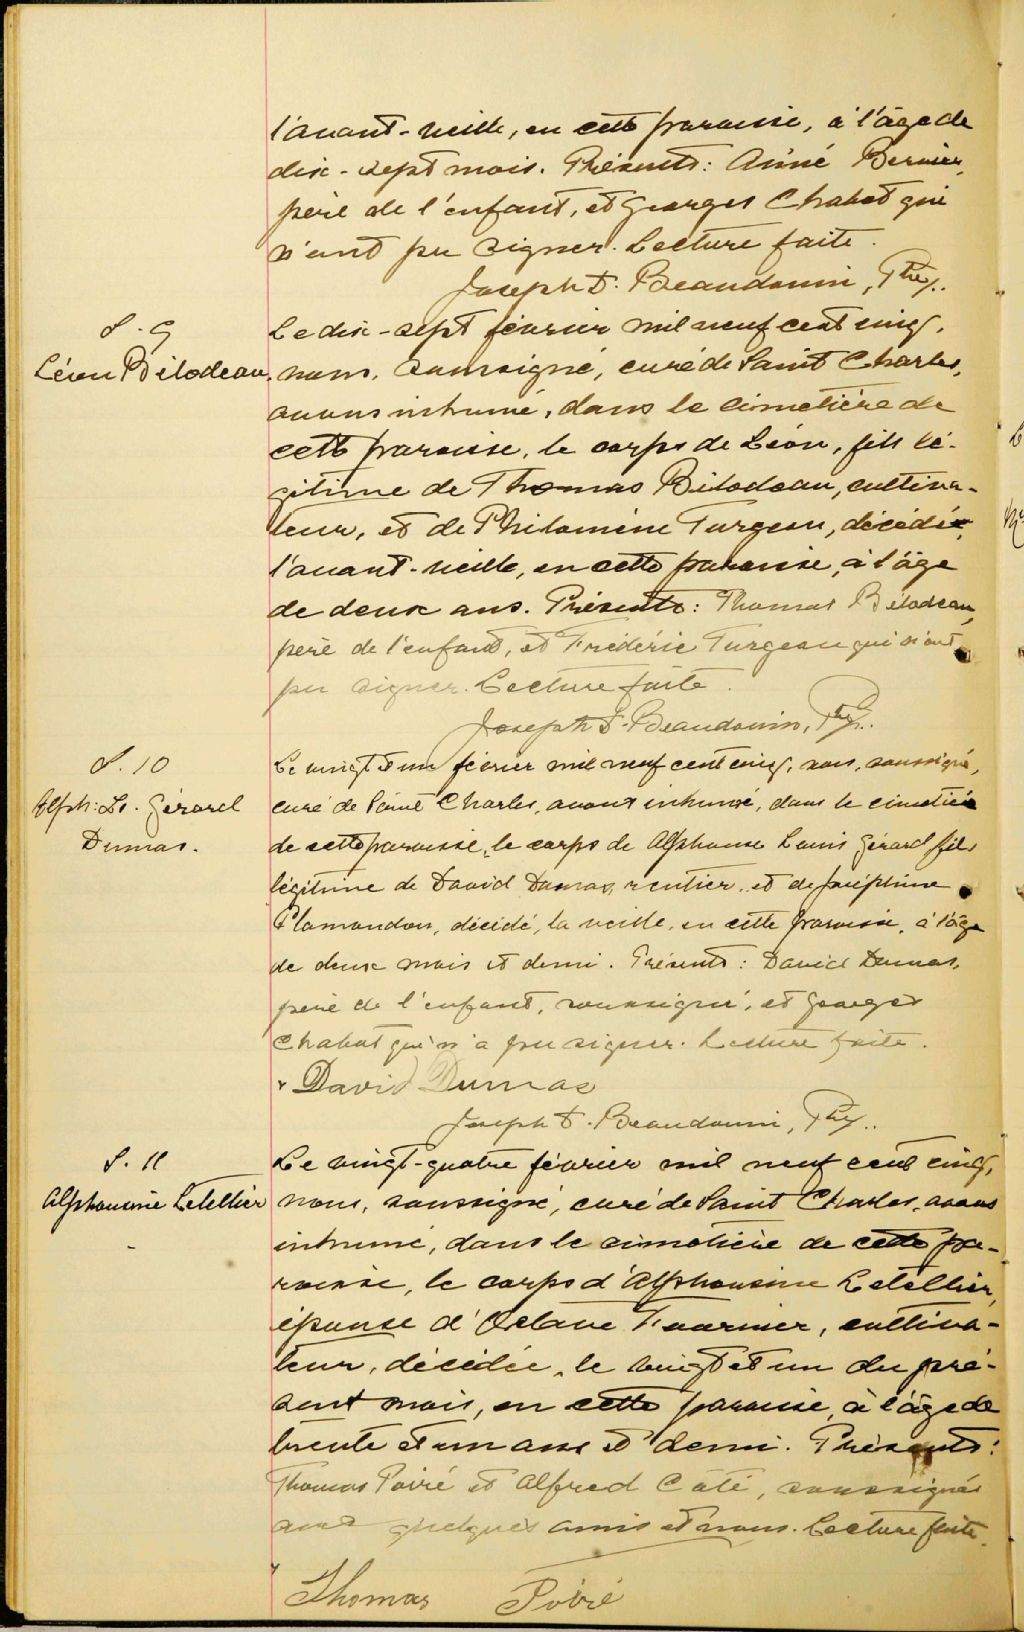 l'avant-veille, en cette paroisse, à l'âge de
dix-sept mois. Présents: Aimé Bernier,
père de l'enfant, et Georges Chabot qui
n'ont pu signer. Lecture faite.
Joseph T. Beaudouin, Ptre.
S. 9
Léon Bilodeau.
Le dix-sept février mil neuf cent cinq,
nous, soussigné, curé de Saint Charles,
avons inhumé, dans le cimetière de
cette paroisse, le corps de Léon, fils lé-
gitime de Thomas Bilodeau, cultiva-
teur, et de Philomène Turgeon, décédé,
l'avant-veille, en cette paroisse, à l'âge
de deux ans. Présents: Thomas Bilodeau,
père de l'enfant, et Frédéric Turgeon qui n'ont
pu signer. Lecture faite.
Joseph T. Beaudouin, Ptre.
S. 10
Alph: Ls. Gérard
Dumas.
Le vingt et un février mil neuf cent cinq, nous, soussigné,
curé de Saint Charles, avons inhumé, dans le cimetière
de cette paroisse, le corps de Alphonse Louis Gérard fils
légitime de David Dumas, rentier, et de Joséphine
Plamondon, décédé, la veille, en cette paroisse, à l'âge
de deux mois et demi. Présents: David Dumas,
père de l'enfant, soussigné, et Georges
Chabot qui n'a pu signer. Lecture faite.
David Dumas
Joseph T. Beaudouin, Ptre.
S. 11
Alphonsine Letellier
Le vingt-quatre février mil neuf cent cinq,
nous, soussigné, curé de Saint Charles, avons
inhumé, dans le cimetière de cette pa-
roisse, le corps d'Alphonsine Letellier,
épouse d'Octave Fournier, cultiva-
teur, décédée, le vingt et un du pré-
sent mois, en cette paroisse, à l'âge de
trente et un ans et demi. Présents:
Thomas Poiré et Alfred Côté, soussignés
avec quelques amis et nous. Lecture faite.
Thomas Poiré